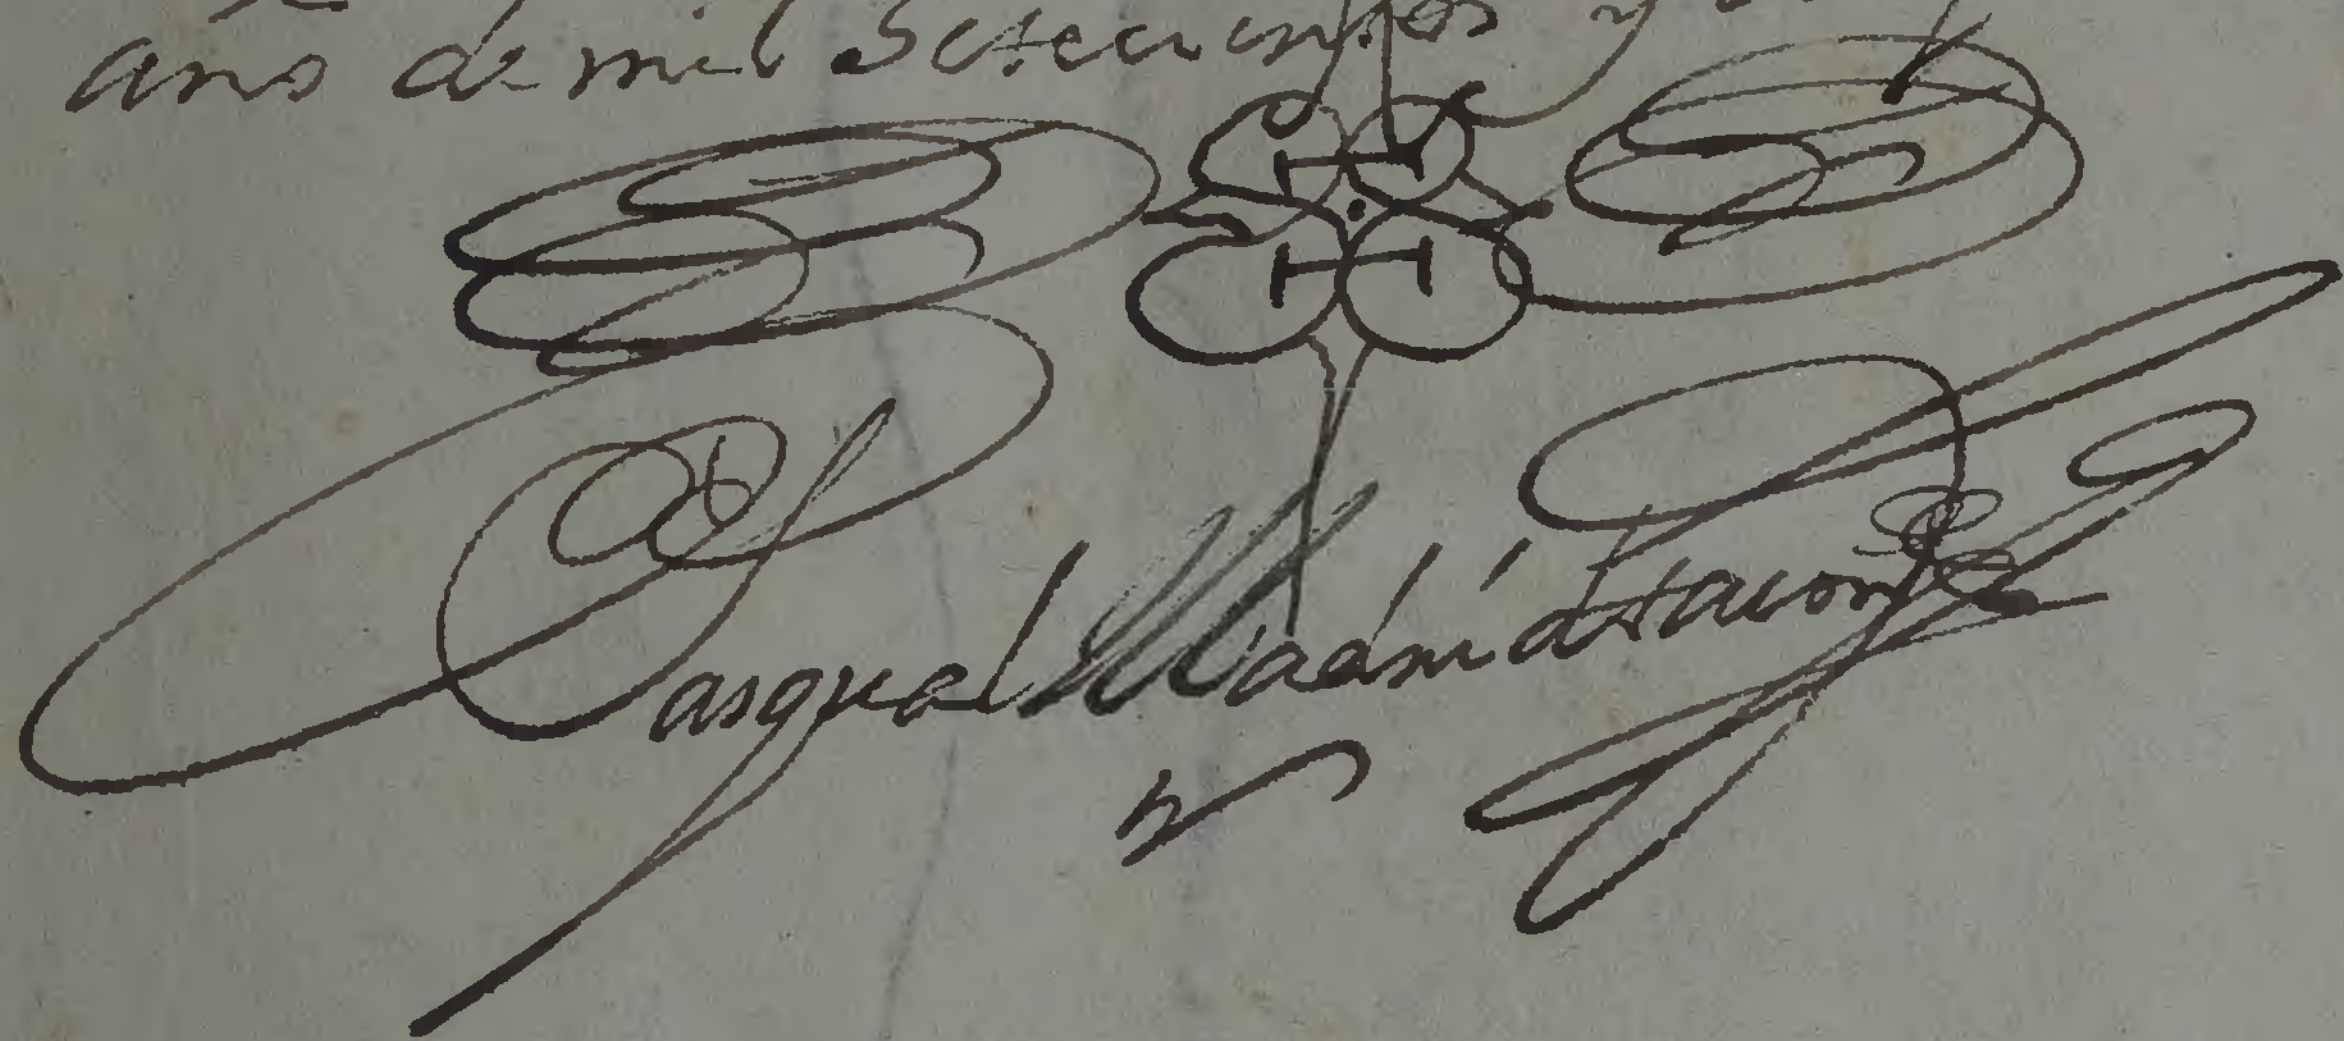 año de mil Setecientos y
Pasqual Madrid